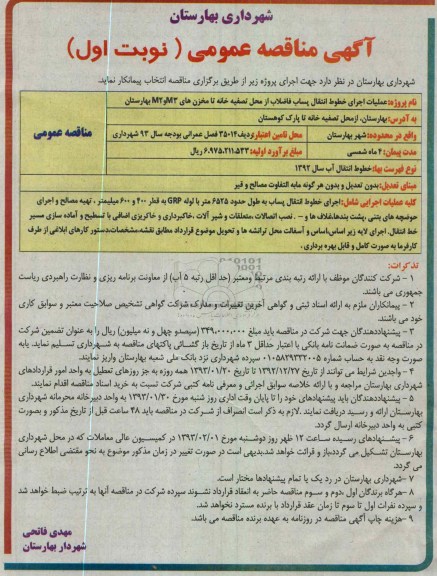 شهرداری بهارستان
آگهی مناقصه عمومی ( نوبت اول)
شهرداری بهارستان در نظر دارد جهت اجرای پروژه زیر از طریق برگزاری مناقصه انتخاب پیمانکار نماید.
نام پروژه: عملیات اجرای خطوط انتقال پساب فاضلاب از محل تصفیه خانه تا مخزن های M۳وM۲ بهارستان
به آدرس: بهارستان، ازمحل تصفیه خانه تا پارک کوهستان
واقع در محدوده: شهر بهارستان محل تامین اعتبار: ردیف ۳۵۰۱۴ فصل عمرانی بودجه سال ۹۳ شهرداری
مناقصه عمومی
مدت پیمان: ۴ ماه شمسی مبلغ برآورد اولیه: ۶.۹۷۵.۲۱۱.۵۳۳ ریال
نوع فهرست بها: خطوط انتقال آب سال ۱۳۹۲
مبنای تعدیل: بدون تعدیل و بدون هر گونه مابه التفاوت مصالح و قیر
کلیه عملیات اجرایی شامل: اجرای خطوط انتقال پساب به طول حدود ۶۵۲۵ متر با لوله GRP به قطر ۴۰۰ و ۶۰۰ میلیمتر ، تهیه مصالح و اجرای
حوضچه های بتنی ،پشت بندها،غلاف ها و –. نصب اتصالات ،متعلقات و شیر آلات ،خاکبرداری و خاکریزی اضافی با تسطیح و آماده سازی مسیر
خط انتقال. اجرای لایه زیر اساس،اساس و آسفالت محل ترانشه ها و تحویل موضوع قرارداد مطابق نقشه،مشخصات،دستور کارهای ابلاغی از طرف
کارفرما به صورت کامل و قابل بهره برداری .
تذکرات:
۱ – شرکت کنندگان موظف با ارائه رتبه بندی مرتبط ومعتبر (حد اقل رتبه ۵ آب) از معاونت برنامه ریزی و نظارت راهبردی ریاست
جمهوری می باشند.
۲ – پیمانکاران ملزم به ارائه اسناد ثبتی و گواهی آخرین تغییرات و مدارک شرکت گواهی تشخیص صلاحیت معتبر و سوابق کاری
خود می باشند.
۳ – پیشنهاددهندگان جهت شرکت در مناقصه باید مبلغ ۳۴۹.۰۰۰.۰۰۰ (سیصدو چهل و نه میلیون) ریال را به عنوان تضمین شرکت
در مناقصه به صورت ضمانت نامه بانکی با اعتبار حداقل ۳ ماه از تاریخ باز گشائی پاکتهای مناقصه به شهرداری تسلیم نماید. یابه
صورت وجه نقد به حساب شماره ۰۱۰۵۸۲۹۳۳۲۰۰۵ سپرده شهرداری نزد بانک ملی شعبه بهارستان واریز نمایند.
۴ – واجدین شرایط می توانند از تاریخ ۱۳۹۲/۱۲/۲۷ تا تاریخ ۱۳۹۳/۰۱/۲۰ همه روزه به جز روزهای تعطیل به واحد امور قراردادهای
شهرداری بهارستان مراجعه و با ارائه خلاصه سوابق اجرائی و معرفی نامه کتبی شرکت نسبت به خرید اسناد مناقصه اقدام نمایند.
۵ – پیشنهاددهندگان باید پیشنهادهای خود را تا پایان وقت اداری روز شنبه مورخ ۱۳۹۳/۰۱/۳۰ به واحد دبیرخانه محرمانه شهرداری
بهارستان ارائه و رسید دریافت نمایند .لازم به ذکر است انصراف از شرکت در مناقصه باید ۴۸ ساعت قبل از تاریخ مذکور و بصورت
کتبی به واحد دبیرخانه ارسال گردد.
۶ – پیشنهادهای رسیده ساعت ۱۲ ظهر روز دوشنبه مورخ ۱۳۹۳/۰۲/۰۱ در کمیسیون عالی معاملات که در محل شهرداری
بهارستان تشکیل می گردد،باز و قرائت خواهد شد،بدیهی است در صورت تغییر در زمان مذکور موضوع به نحو مقتضی اطلاع رسانی
می گردد.
۷ –شهرداری بهارستان در رد یک یا تمام پیشنهادها مختار است.
۸ –هرگاه برندگان اول ،دوم و سوم مناقصه حاضر به انعقاد قرارداد نشوند سپرده شرکت در مناقصه آنها به ترتیب ضبط خواهد شد
و سپرده نفرات اول تا سوم تا زمان عقد قرارداد با برنده مسترد نخواهد شد.
۹ –هزینه چاپ آگهی مناقصه در روزنامه به عهده برنده مناقصه می باشد.
مهدی فاتحی
شهردار بهارستان